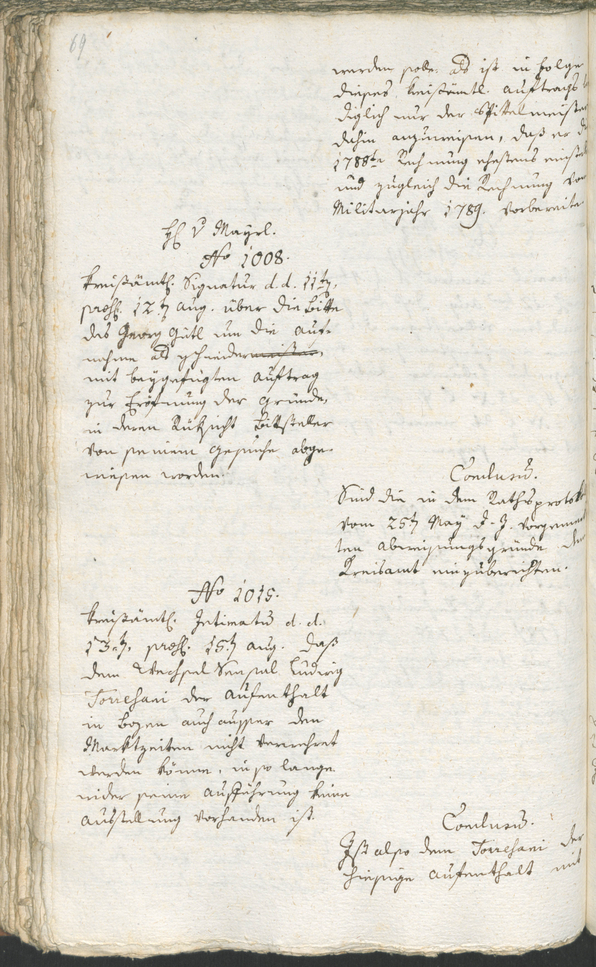 69
werden solle. als ist in Folge
dieses kreisämtl. Auftrags
diglich nur der Spitelmeister
dahin anzuweisen, daß er d
1788te Rechnung ehestens
und zugleich die Rechnung von
Militarjahr 1789. vorbereite
H v Mayrl.
No 1008.
Kreisämtl. Signatur d. d. 11t,
præs. 12t Aug. über die Bitte
des Georg Gütl um die Auf-
nahme als Schneidermeister,
mit beygefügten Auftrag
zur Eröfnung der Gründe,
in deren Rüksicht Bittsteller
von seinem Gesuche abge-
wiesen worden.
Conclusum.
Sind die in dem Rathsprotok
vom 25t May d. J. vorgemerk
ten Abweisungsgründe dem
Kreisamt einzuberichten.
No 1015.
Kreisämtl. Intimatum d. d.
13t, præs. 15t Aug. daß
dem Wechsel Sensal Ludwig
Torresani der Aufenthalt
in Bozen auch ausser den
Marktzeiten nicht verwehret
werden könne, in so lange
wider seine Aufführung keine
Ausstellung vorhanden ist.
Conclusum.
Ist also dem Torresani der
hiesige Aufenthalt mit